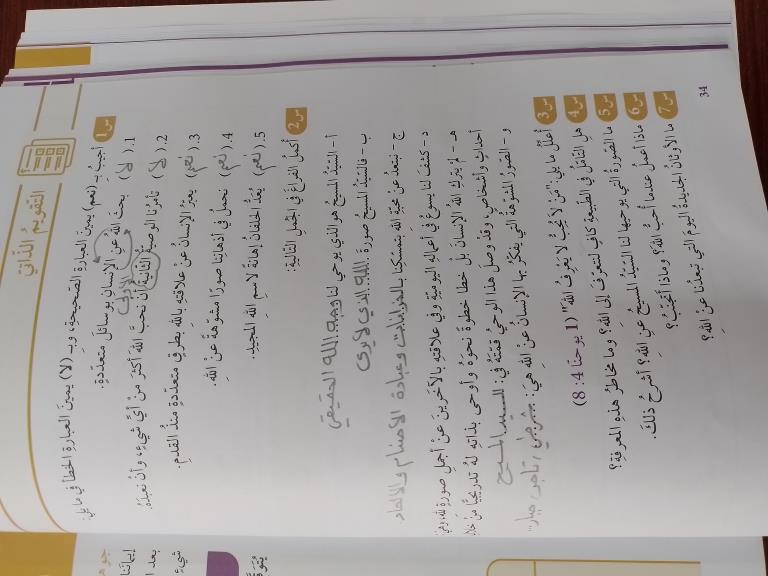 التقويم الذاتي
س1 أجيبُ بـ (نعم) يمينَ العبارةِ الصّحيحةِ، وبـ (لا) يمينَ العبارةِ الخطأ في ما يلي:
1. ( لا ) بحثَ اللهُ عنِ الإنسانِ بوسائلَ متعدّدةٍ.
الأولى
2. ( لا ) تأمرُنا الوصيّةُ الثّانيةُ أن نحبَّ اللهَ أكثرَ من أيِّ شيءٍ، وأنْ نعبدَهُ.
3. ( نعم ) يعبّرُ الإنسانُ عنْ علاقتِهِ باللهِ بطرقٍ متعدّدةٍ منذُ القدمِ.
4. ( نعم ) نحملُ في أذهانِنا صورًا مشوّهةً عنِ اللهِ.
5. ( نعم ) يُعَدُّ الحلفانُ إهانةً لاسمِ اللهِ المجيدِ.
س2 أكملُ الفراغَ في الجملِ التّاليةِ:
أ - السّيّدُ المسيحُ هو الذي يوحي لنا وجه الله الحقيقي
ب - فالسّيّدُ المسيحُ صورةُ الله الذي لا يُرى
ج - نبتعدُ عنْ محبّةِ اللهِ بتمسّكِنا بالخرافات وعبادة الأصنام والالحاد
د - كشفَ لنا يسوعُ في أعمالِهِ اليوميّةِ وفي علاقتِهِ بالآخرينَ عنْ أجملِ صورةٍ للهِ، وهيَ
هـ - لمْ يتركِ اللهُ الإنسانَ بل خطا خطوةً نحوَهُ وأوحى بذاتِهِ لهُ تدريجيًّا منْ خلالِ
أحداثٍ وأشخاصٍ، وقدْ وصلَ هذا الوحيُ قمّتَهُ في: السيد المسيح
و - الصّورُ المشوّهةُ التي يفكّرُ بها الإنسانُ عنِ اللهِ هيَ: شرطي، تاجر، جبار
س3 أعلّلُ ما يلي: "مَنْ لا يُحِبُّ لا يَعْرِفُ اللهَ" (1 يوحنّا 4: 8)
س4 هلِ التأمّلُ في الطّبيعةِ كافٍ لنتعرّفَ إلى اللهِ؟ وما مخاطرُ هذهِ المعرفةِ؟
س5 ما الصّورةُ التي يوحيها لنا السّيّدُ المسيحُ عنِ اللهِ؟ أشرحُ ذلكَ.
س6 ماذا أعملُ عندما أحبُّ اللهَ؟ وماذا أتجنّبُ؟
س7 ما الأوثانُ الجديدةُ اليومَ التي تبعدُنا عنِ اللهِ؟
34